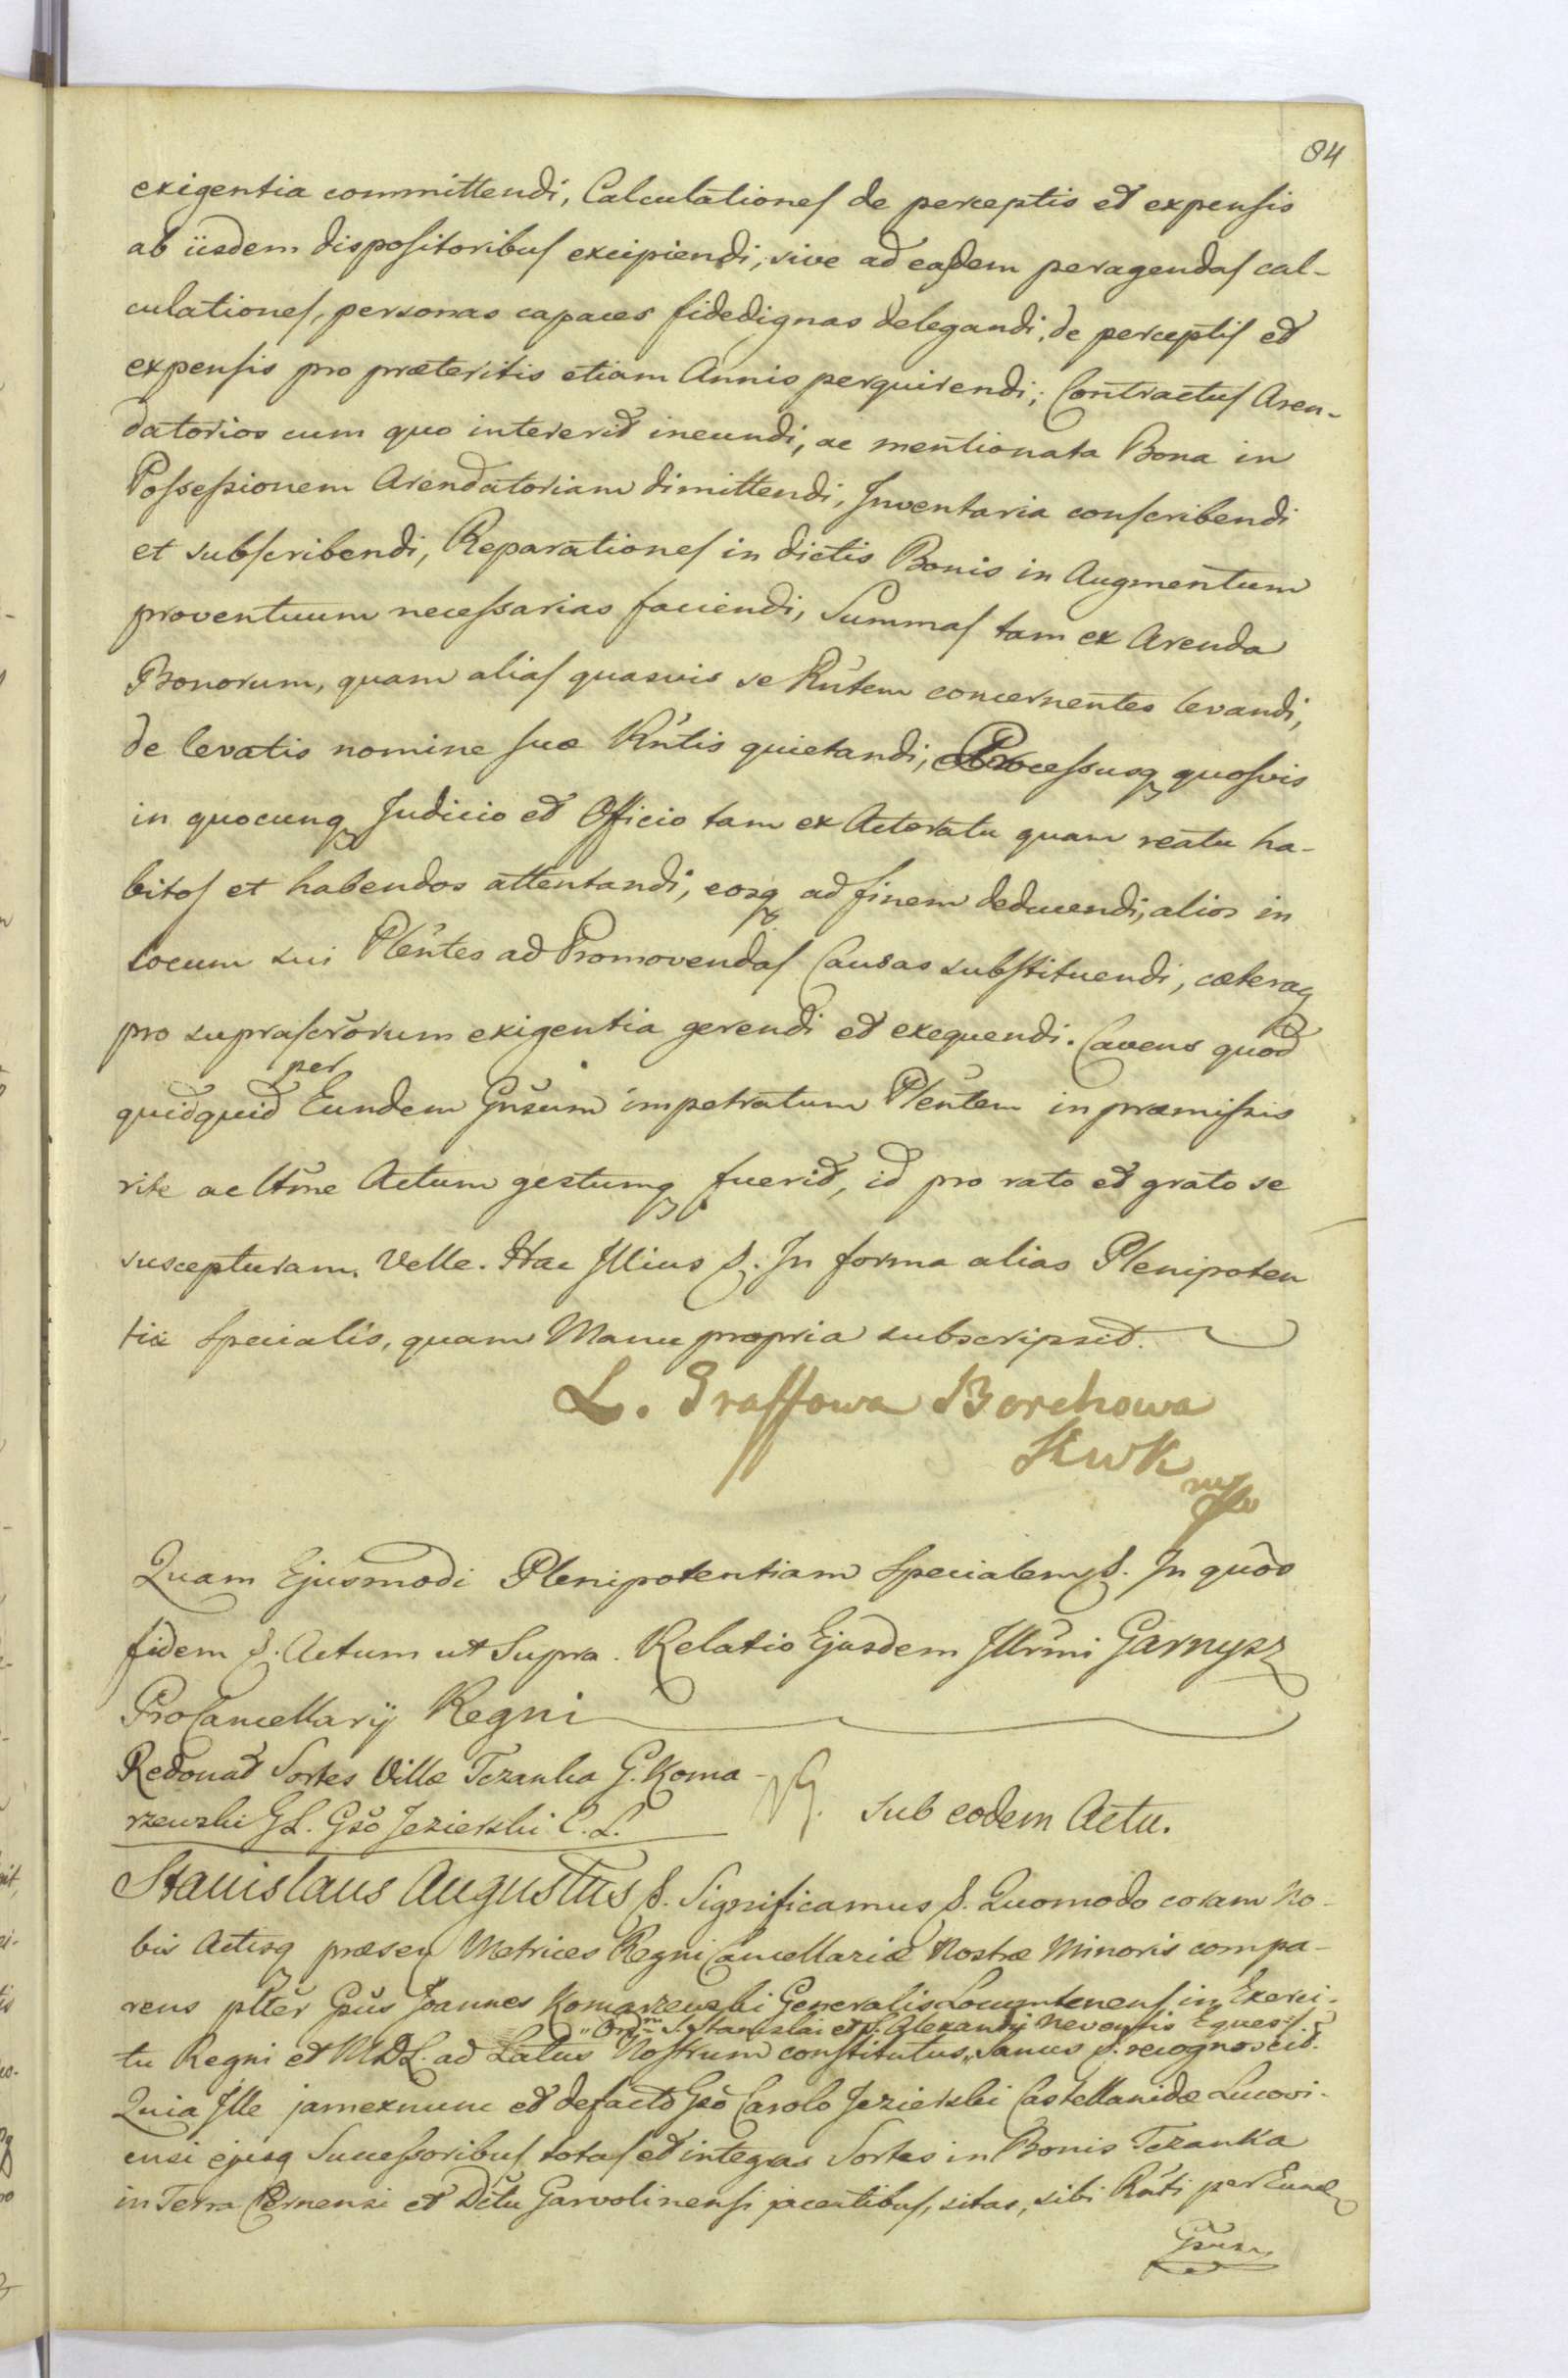 84
exigentia committendi, Calculationes de perceptis et expensis
ab iisdem dispositoribus excipiendi, sive ad easdem peragendas cal-
culationes, personas capaces fidedignas delegandi, de perceptis et
expensis pro præteritis etiam Annis perquirendi; Contractus Aren-
datorios cum quo intererit ineundi, ac mentionata Bona in
Possessionem Arendatoriam dimittendi, Inventaria conscribendi
et subscribendi, Reparationes in dictis Bonis in Augmentum
proventuum necessarias faciendi, Summas tam ex Arenda
Bonorum, quam alias quasvis se Rńtem concernentes levandi,
de levatis nomine suæ Rńtis quietandi, Processusq quosvis
in quocunq Judicio et Officio tam ex Actoratu quam reatu ha-
bitos et habendos attentandi, eosq ad finem deducendi, alios in
locum sui Pleńtes ad Promovendas Causas substituendi, cæteraq
pro suprascrõrum exigentia gerendi et exequendi. Cavens quod
per
quidquid Eundem Gńsum impetratum Pleńtem in præmissis
rite ac ltme Actum gestumq fuerit, id pro rato et grato se
suscepturam. Velle. Hac Illius &. In forma alias Plenipoten
tiæ Specialis, quam Manu propria subscripsit.
L. Graffowa Borchowa
KWK
mp
Quam Ejusmodi Plenipotentiam Specialem &. In quõr
fidem &. Actum ut Supra. Relatio Ejusdem Illrmi Garnysz
ProCancellarij Regni
Redonat Sortes Villæ Tczanka G. Koma-
rzewski GL. Gso Jezierski C. L.
sub eodem Actu.
Stanislaus Augustus &. Significamus &. Quomodo coram No-
bis Actisq præsen Metrices Regni Cancellariæ Nostræ Minoris compa-
rens plter Gsus Joannes Komarzewski Generalis Locumtenens in Exerci-
"Ordm S. Stanislai et S. Alexandrij Nevensis Eques"
tu Regni et MDL. ad Latus Nostrum constitutus, sanus &. recognovit.
Quia Ille jam exnunc et defacto Gso Carolo Jezierski Castellanidæ Lucovi-
ensi ejusq Successoribus totas et integras Sortes in Bonis Tczanka
in Terra Cernensi et Dctu Garvolinensi jacentibus, sitas, sibi Rńti per Eund
Gsum